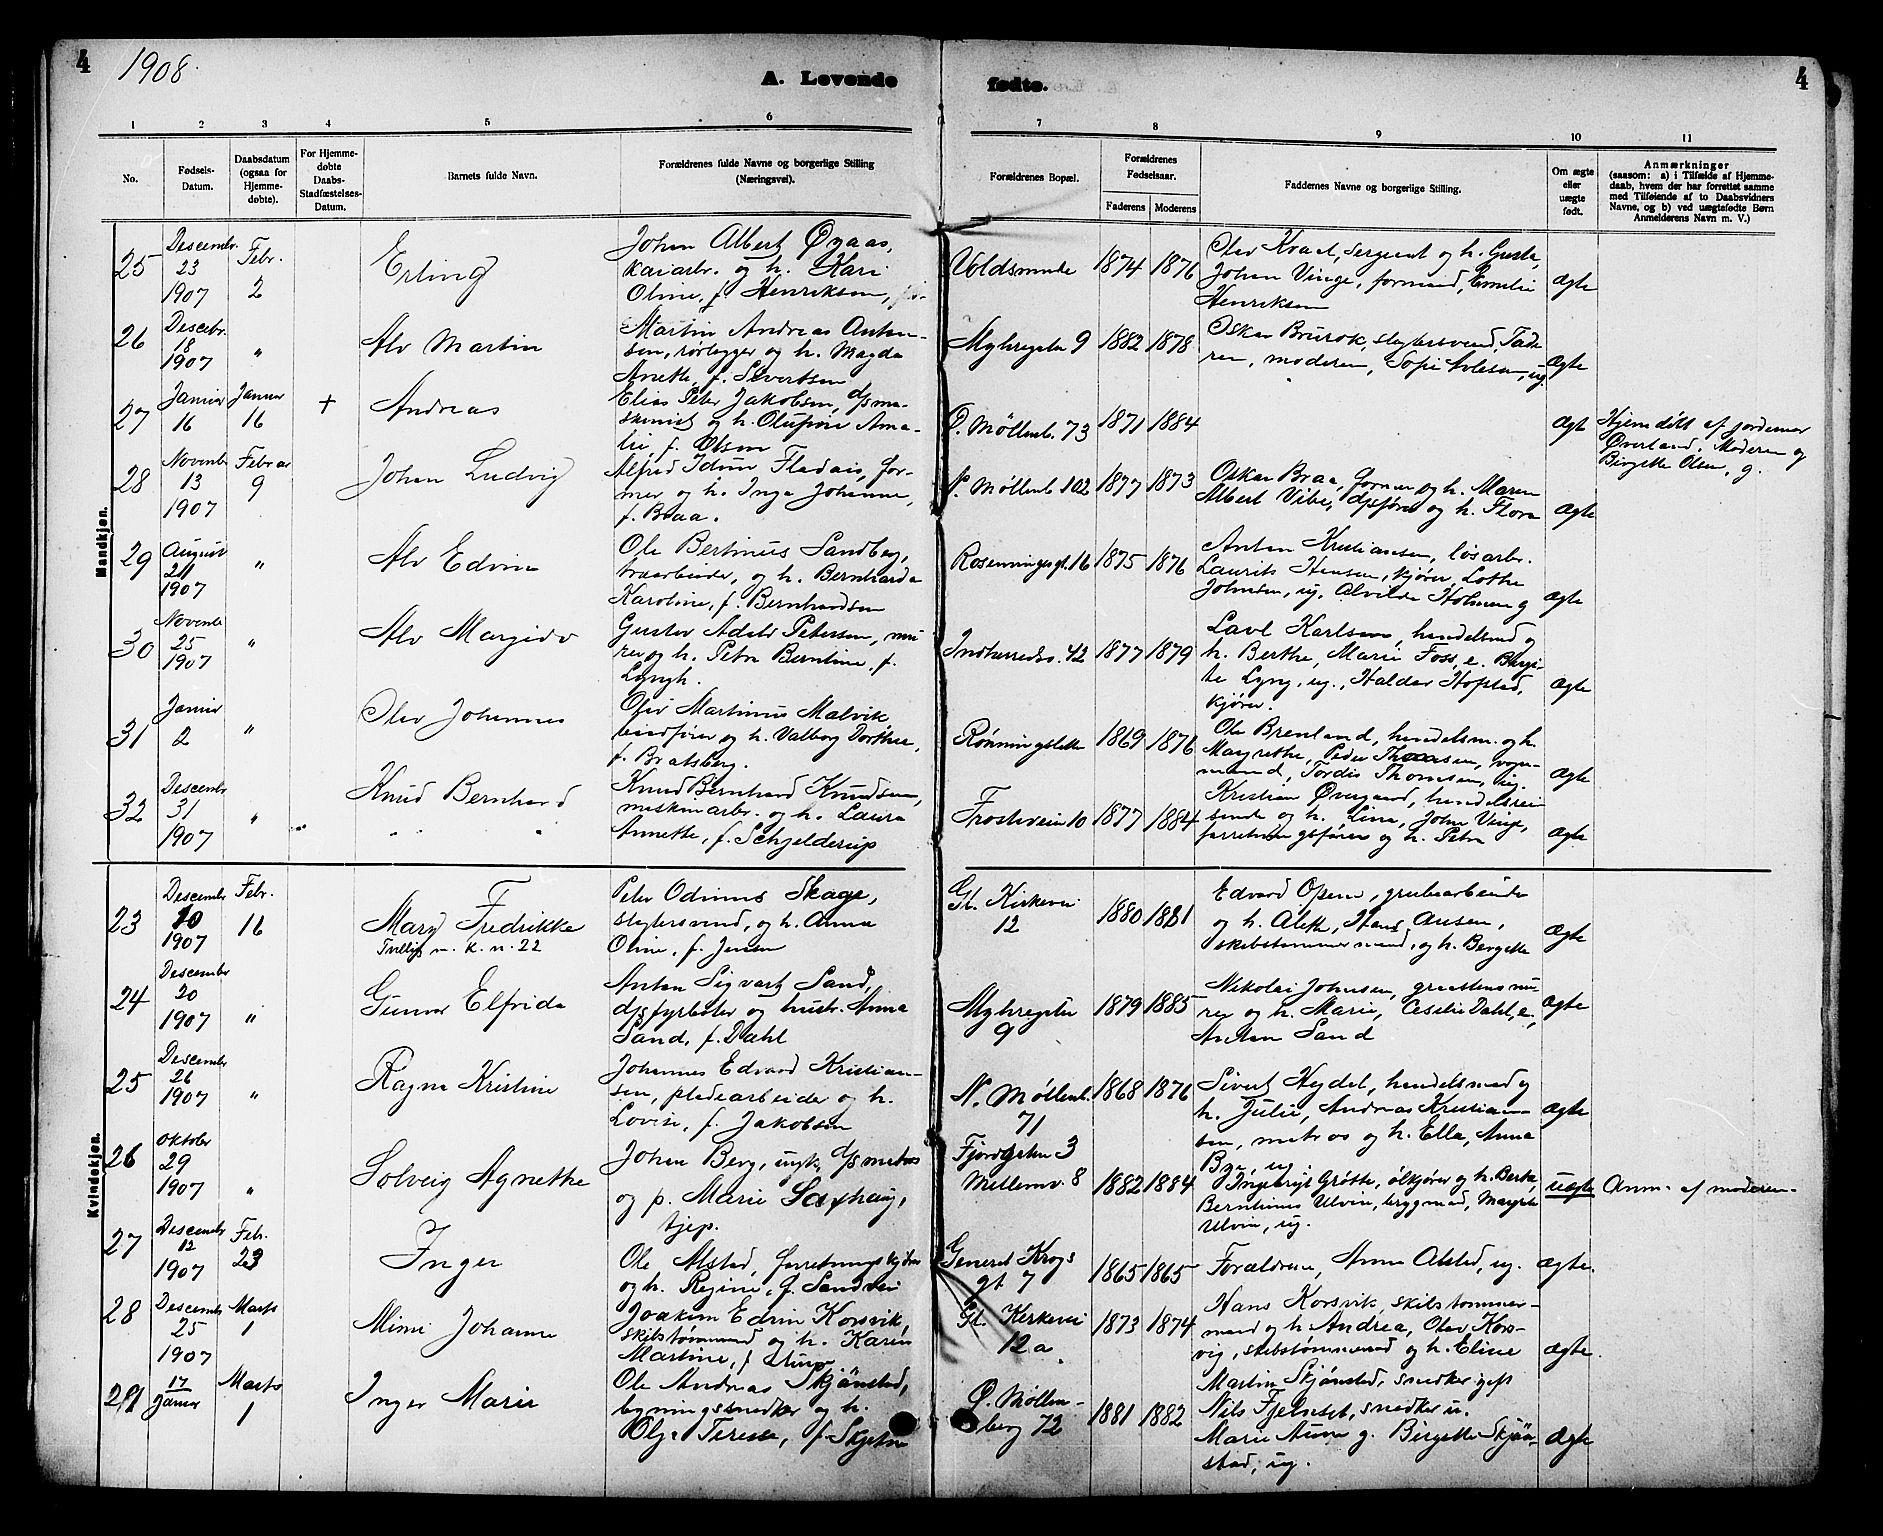 4
1908.
A. Levende
fødte.
4
1
2
3
4
5
6
7
8
9
10
11
No.
Fødsels-
Datum.
Daabsdatum
(ogsaa for
Hjemme-
døbte).
For Hjemme-
døbte
Daabs-
Stadfæstelses-
Datum.
Barnets fulde Navn.
Forældrenes fulde Navne og borgerlige Stilling
(Næringsvei).
Forældrenes Bopæl.
Forældrenes
Fødselsaar.
Faderens
Moderens
Faddernes Navne og borgerlige Stilling.
Om ægte
eller
uægte
født.
Anmærkninger
(saasom: a) i Tilfælde af Hjemme-
daab, hvem der har forrettet samme
med Tilføiende af to Daabsvidners
Navne, og b) ved uægtefødte Børn
Anmelderens Navn m. V.)
Mandkjøn.
25
Descembr.
23
1907
Febr.
2
Erling
Johan Albert Øyaas,
kaiarbr. og h. Kari
Oline, f. Henriksen,
Voldsminde
1874
1876
Olav Kvaal, sergeant og h. Gusta,
Johan Vinge, formand, Emilie
Henriksen
ægte
26
Descebr.
18
1907
"
Alv Martin
Martin Andreas Anton-
sen, rørlegger og h. Magda
Anette, f. Sivertsen
Myhregaten 9
1882
1878
Oskar Brurok, slagtersvend, Fade-
ren, moderen, Sofie
ug.
ægte
27
Januar
16
Januar
16
+
Andreas
Elias Peter Jakobsen, d/s ma-
skinist og h. Olufine Ama-
lie, f. Olsen
Ø. Møllenb. 73
1871
1884
ægt
Hjemdøbt af jordemor
Øverland, Moderen og
Birgitte Olsen, g.
28
Novembr
13
1907
Februar
9
Johan Ludvig
Alfred Idun Fladaas, for-
mer og h. Inga Johanne,
f. Braa.
N. Møllenb 102
1877
1873
Oskar Braa, former og h. Maren
Albert Vibe, dpsfører og h. Flora
ægte
29
August
21
1907
"
Alv Edvin
Ole Bertinus Sandberg,
træarbeider, og h. Bernharda
Karoline, f. Bernhardsen
Rosenningsgt. 16
1875
1876
Anton Kristiansen, løsarbr.
Laurits Hansen, kjører, Lothe
Johnsen, ug. Alvilde Holmen g
ægte
30
Novembr
25
1907
"
Alv Margido
Gustav Adolv Petersen, mu-
rer og h. Petra Berntine, f.
Lyngh.
Indherredsv. 42
1877
1879
Lavl Karlsen, handelsmd og
h. Berthe, Marie Foss, e. Birgi-
te Lyng, ug., Haldor Hofstad,
kjører.
ægte
31
Januar
2
"
Olav Johannes
Olav Martinus Malvik
og h. Valborg Dorthea,
f. Bratsberg.
Rønningsletta
1869
1876
Ole Brenland, handelsm. og h.
Margrethe, Peder Thomsen, vogn-
mand, Tordis Thomsen, ug.
ægte
32
Descembr
31
1907
"
Knud Bernhard
Knud Bernhard Knudsen,
maskinarbr. og h. Laura
Annette, f. Schjelderup
Frostaveien 10
1877
1884
Kristian Overgaard, handelsrei-
sende og h. Lina, John Vinje,
forretningsfører og h. Petra
ægte
Kvindekjøn.
23
Descembr
10
1907
Febr.
16
Mary Fredrikke
Tvilling m. k. n. 22
Peter Odinus Skage,
slagtersvend, og h. Anna
Oline, f. Jensen
Gl. Kirkevei
12
1880
1881
Edvard Open, grubearbeider
og h. Alette, Hans Ansen,
skibstømmermand, og h. Bergette
ægte
24
Descember
20
1907
"
Gunvor Elfrida
Anton Sigvart Sand,
d/s fyrbøter og hustr. Anna
Sand, f. Dahl
Myhregaten
9
1879
1885
Nikolai Johnsen, graastensmu-
rer og h. Marie, Cecilie Dahl, e.
Anton Sand
ægte
25
Descembr
26
1907
"
Ragna Kristine
Johannes Edvard Kristian-
sen, pladearbeider og h.
Lovise, f. Jakobsen
N. Møllenb.
71
1868
1876
Sivert Hydel, handelsmand og
h. Julie, Andreas Kristian-
sen, matros og h. Ella, Anna
Bye, ug
ægte
26
Oktobr
29
1907
"
Solveig Agnethe
Johan Berg, ungk. d/s matros
og p. Marie Saxhaug,
tjep.
Fjordgaten 3
Mellemv. 8
1882
1884
Ingebrigt Grøtte, ølkjører og h. Berta,
Bernthinus Ulvin, bryggmand, Magda
Ulvin, ug.
uægte
Anm. af moderen.
27
Descembr
12
1907
Febr.
23
Inger
Ole Alstad, forretningsfører
og h. Regine, f. Sandvei
General Krogs
gt 7
1865
1865
Forældrene, Anna Alstad, ug.
ægte.
28
Descembr
25
1907
Marts
1
Mimi Johanne
Joakim Edvin Korsvik,
skibstømmmand og h. Karin
Martine, f.
Gl. Kerkevei
12 a
1873
1874
Hans Korsvik, skibstømmer-
mand og h. Andrea, Olav Kors-
vig, skibstømmermand og h. Eline
ægte.
29
17
Januar
Marts
1
Inger Marie
Ole Andreas Skjånstad,
bygningssnedker og h.
Olga Terese, f. Skjetne
Ø. Møllen-
berg 72
1881
1882
Martin Skjånstad, snedker gift
Nils Fjelnset, snedker u.
Marie Aune g. Birgitte Skjån-
stad, ug.
ægte